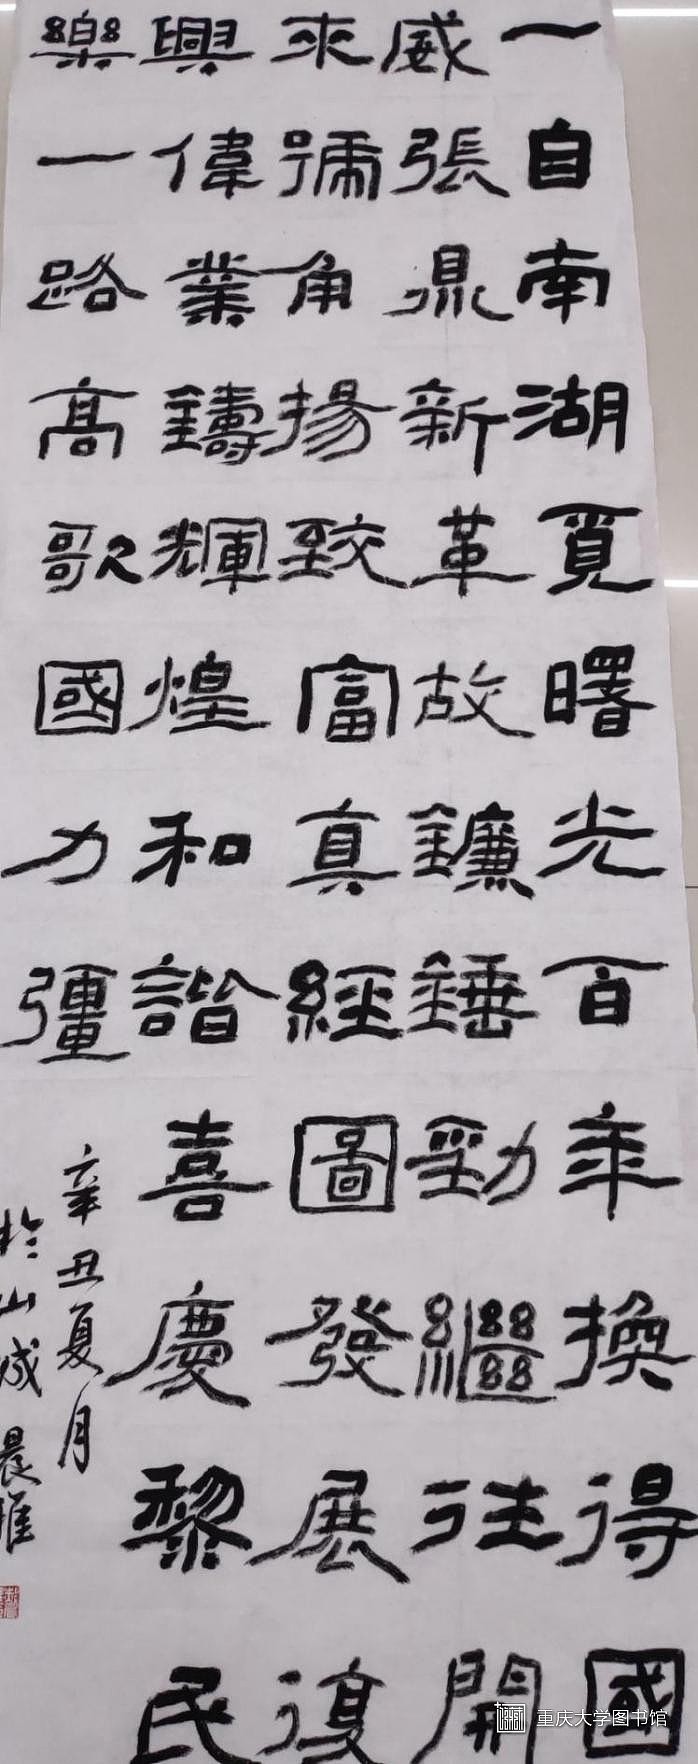 一自南湖覓曙光百年換得國
威張鼎新革故鐮錘勁繼往開
來號角揚致富真經圖發展復
興偉業鑄輝煌和諧喜慶黎民
樂一路高歌國力彊
辛丑夏月
於山城晨維
重庆大学图书馆